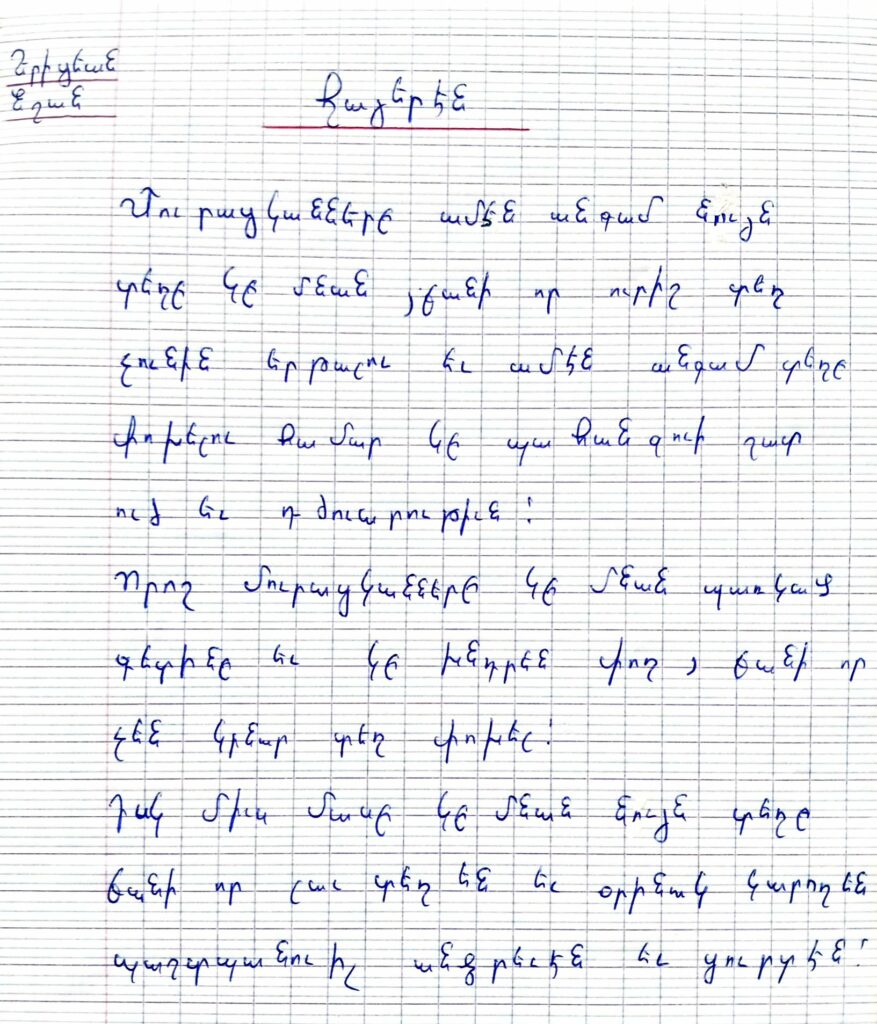 Երիցեան
Նշան
Հայերէն
Մուրացկաննները ամէն անգամ նոյն
տեղը կը մնան , քանի որ ուրիշ տեղ
չունին երթալու եւ ամէն անգամ տեղը
փոխելու համար կը պահանջուի շատ
ուժ եւ դժուարութիւն :
Որոշ մուրացկանները կը մնան պառկած
գետինը եւ կը խնդրեն փող , քանի որ
չեն կրնար տեղ փոխել :
Իսկ միւս մասը կը մնան նոյն տեղը
քանի որ լաւ տեղ են եւ օրինակ կարող են
պաշտպանուիլ անձրեւէն եւ ցուրտէն :